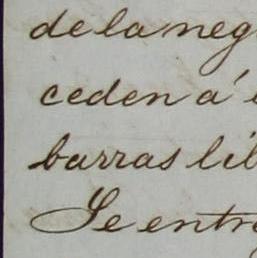 de la neg
ceden á
barras lib
Se entre